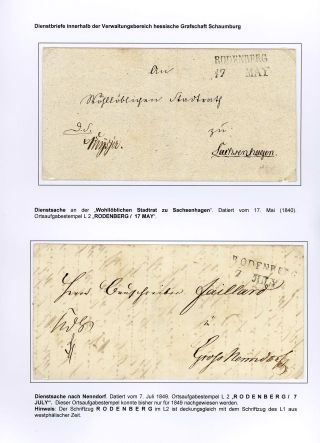 Dienstbriefe innerhalb der Verwaltungsbereich hessische Grafschaft Schaumburg
RODENBERG
17 MAY
An
Wohllöblichen Stadtrath
D.S.
zu
Sachsenhagen.
Dienstsache an der „Wohllöblichen Stadtrat zu Sachsenhagen“. Datiert vom 17. Mai (1840).
Ortsaufgabestempel L 2 „RODENBERG / 17 MAY“.
RODENBERG
7 JULY
Herrn
Gaillard
Groß Nenndorf
Dienstsache nach Nenndorf. Datiert vom 7. Juli 1849, Ortsaufgabestempel L 2 „R O D E N B E R G / 7
JULY“. Dieser Ortsaufgabestempel konnte bisher nur für 1849 nachgewiesen werden.
Hinweis: Der Schriftzug R O D E N B E R G im L2 ist deckungsgleich mit dem Schriftzug des L1 aus
westphälischer Zeit.